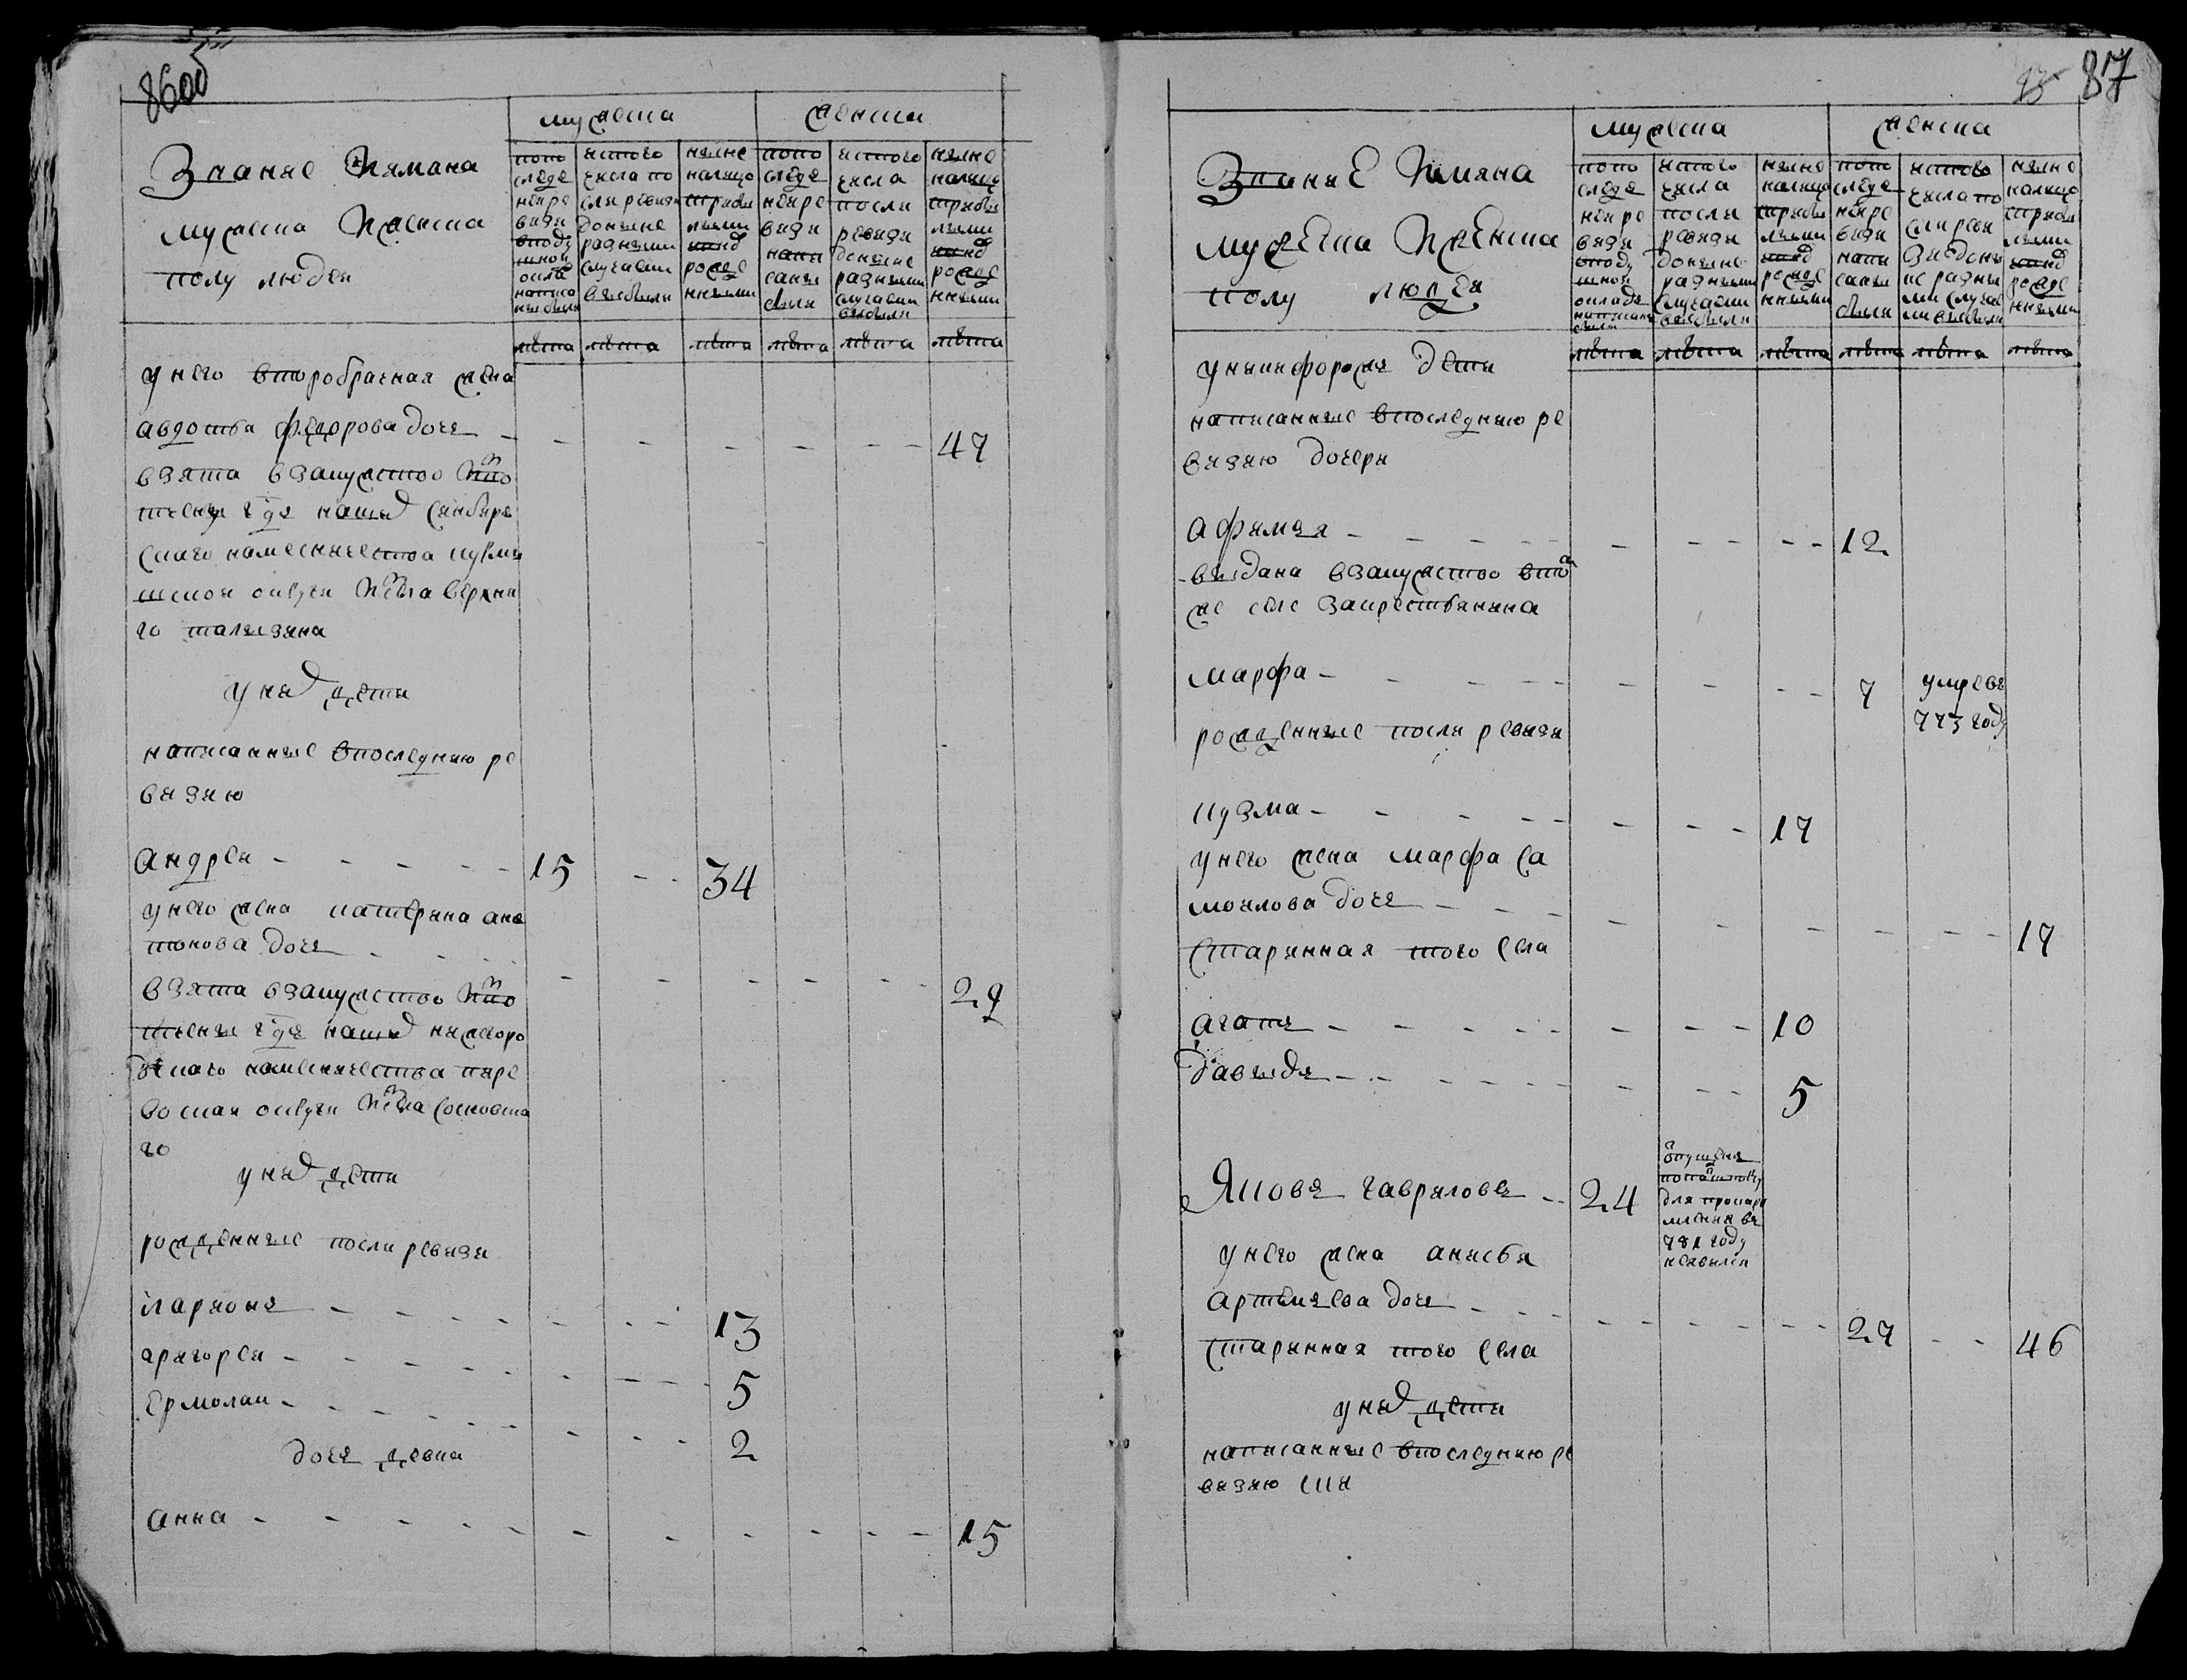 86об
Звание Имяна
мужеска Иженска
полу людеи
мужеска
женска
попо следнеи ревизи вподушной окладъ написаны были
истого числа после ревизи доныне разными случаями выбыли
ныне налицо сприбылыми ивновь рожденными
попо следнеи ревизи написаны были
истого числа после ревизи доныне разными случаями выбыли
ныне налицо сприбылыми ивновь рожденными
лѣта лѣта лѣта лѣта лѣта лѣта
унего второбрачная жена
авдотья федорова дочь - - - - - - - 47
взята взамужство изво
тчены гдя нашей синбир
скаго намесничества курмы
шской округи изсела верхня
го талызина
унихъ дети
написанные впоследнюю ре
визию
андреи - - - - - 15 - - 34
унего жена катерина ан
тонова дочь - - - - - - - - 29
взята взамужство изво
тчены гдя нашей нижегоро
дскаго намесничества пере
воской округи изсела сосновска
го
унихъ дети
рожденные после ревизи
иларионъ - - - - - - - - 13
григореи - - - - - - - - 5
ермолаи - - - - - - - - 2
дочь девка
анна - - - - - - - - - - 15
87
Звание Имяна
мужеска Иженска
полу людеи
мужеска
женска
попо следнеи ревизи вподушной окладъ написаны были
истого числа после ревизи доныне разными случаями выбыли
ныне налицо сприбылыми ивновь рожденными
попо следнеи ревизи написаны были
истого числа после ревизи доныне разными случаями выбыли
ныне налицо сприбылыми ивновь рожденными
лѣта лѣта лѣта лѣта лѣта лѣта
уникифора дети
написанные впоследнюю ре
визию дочери
афимья - - - - - - - - - - 12
выдана взамужство втом
же селе закрестьянина
марфа - - - - - - - - - 7 умре въ
773 году
рожденные после ревизи
кузма - - - - - - - - 17
унего жена марфа са
моилова дочь - - - - - - - - 17
старинная того села
агапъ - - - - - - - - 10
давыдъ - - - - - - - - 5
Яковъ гавриловъ - 24
отпущенъ
попашпорту
для прокор
мления въ
781 году
неявился
унего жена анисья
артемьева дочь - - - - - - - 27 - - 46
старинная того села
унихъ дети
написанные впоследнюю ре
визию сы